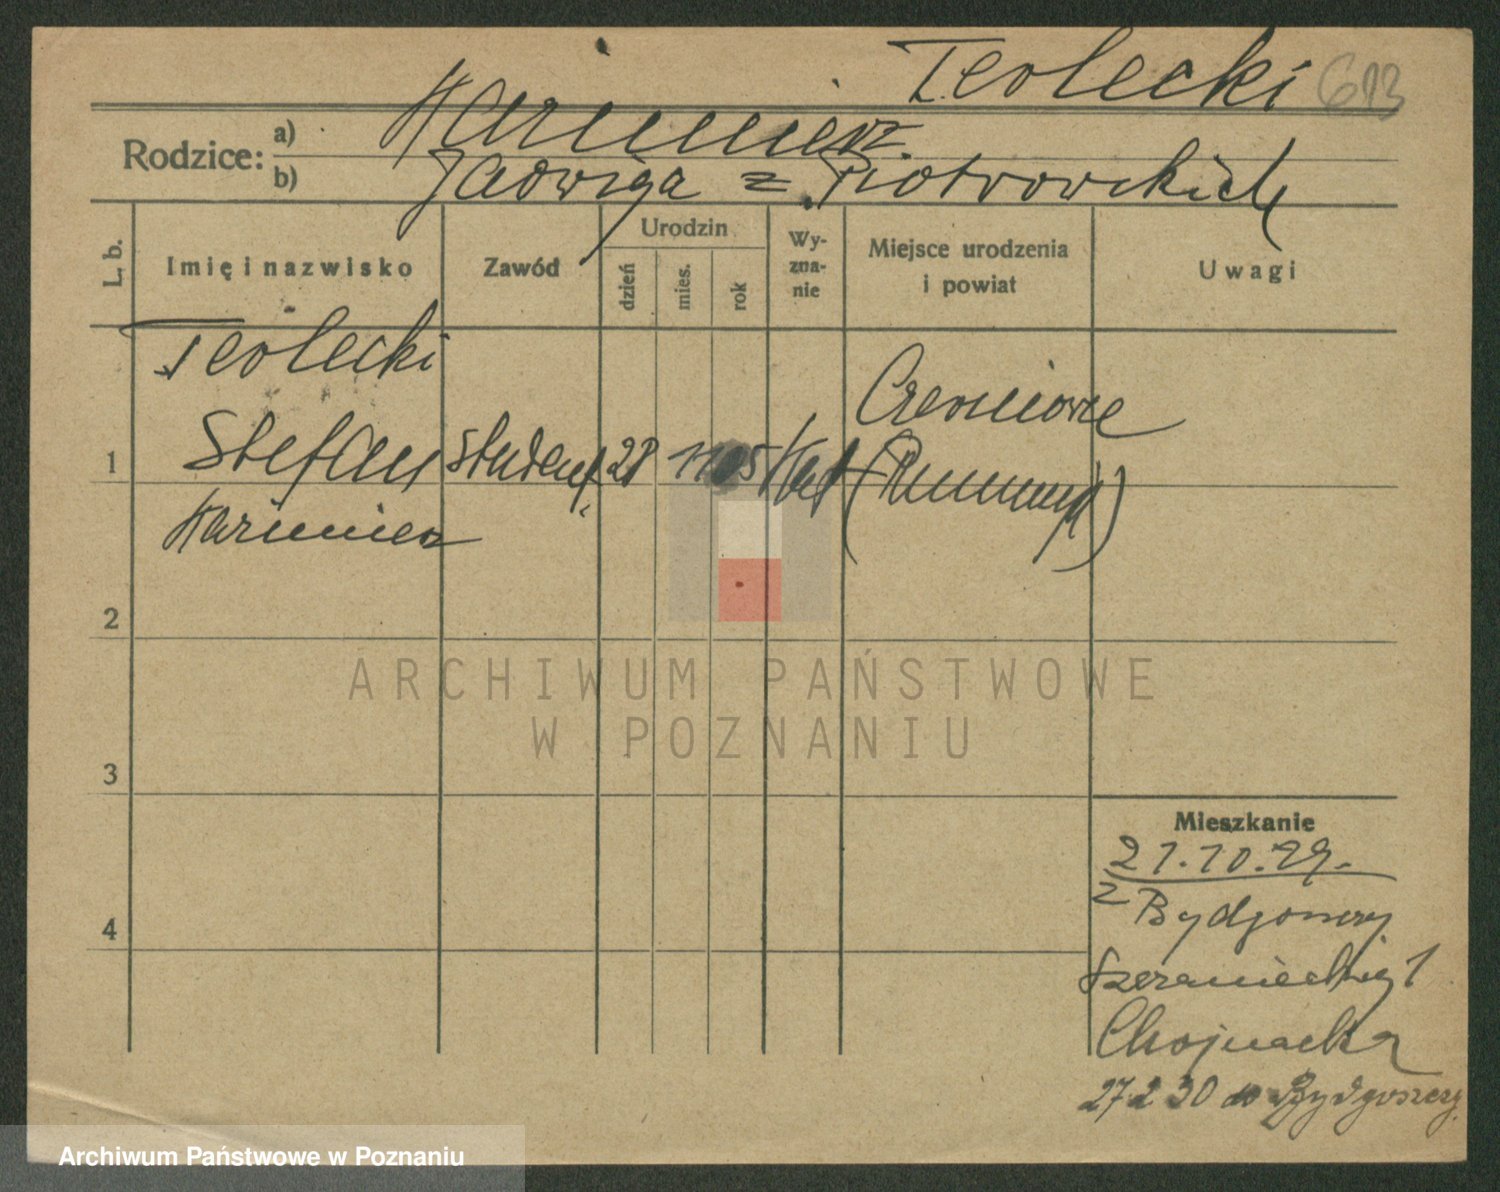 Teolecki 613
Rodzice: a) Kazimierz
b) Jadwiga z Piotrowskich
L. b. Imię i nazwisko Zawód Urodzin dzień mies. rok Wy-zna-nie Miejsce urodzenia i powiat Uwagi
Teolecki
1 Stefan student 28 11 05 kat Czerniowce
Kazimierz (Rumunja)
2
3
4
ARCHIWUM PAŃSTWOWE
W POZNANIU
Mieszkanie
21.10.29.
z Bydgoszczy
1
Chojnacka
27 2 30 do Bydgoszczy
Archiwum Państwowe w Poznaniu